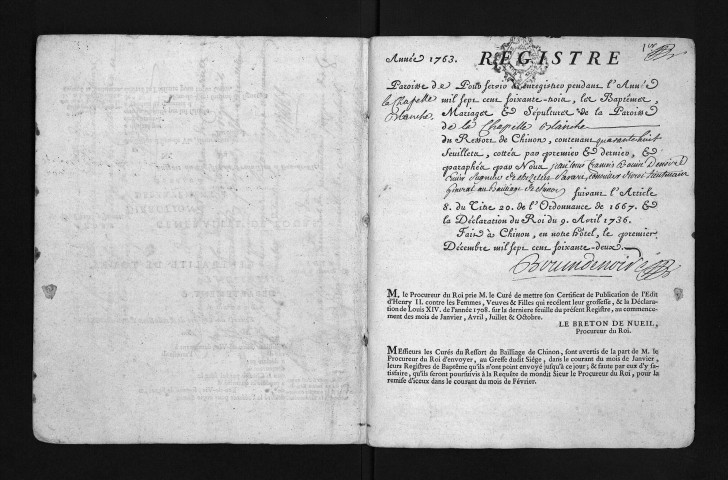 Année 1763. REGISTRE 1er
Paroisse de la Chapelle blanche
Pour servir à enregistrer pendant l'Année
mil sept cent soixante-trois, les Baptêmes,
Mariages & Sépultures de la Paroisse
de la Chapelle blanche
du Ressort de Chinon, contenant quarante huit
feuillets, cottés par premier & dernier, &
paraphés par Nous
general au Bailliage de Chinon suivant l'Article
8. du Titre 20. de l'Ordonnance de 1667. &
la Déclaration du Roi du 9. Avril 1736.
Fait à Chinon, en notre hôtel, le premier
Décembre mil sept cent soixante-deux.
M. le Procureur du Roi prie M. le Curé de mettre son Certificat de Publication de l'Edit
d'Henry II. contre les Femmes, Veuves & Filles qui recélent leur grossesse, & la Déclara-
tion de Louis XIV. de l'année 1708. sur la derniere feuille du présent Registre, au commence-
ment des mois de Janvier, Avril, Juillet & Octobre.
LE BRETON DE NUEIL,
Procureur du Roi.
Messieurs les Curés du Ressort du Bailliage de Chinon, sont avertis de la part de M. le
Procureur du Roi d'envoyer, au Greffe dudit Siége, dans le courant du mois de Janvier,
leurs Registres de Baptême qu'ils n'ont point envoyé jusqu'à ce jour; & faute par eux d'y sa-
tisfaire, qu'ils seront poursuivis à la Requête de mondit Sieur le Procureur du Roi, pour la
remise d'iceux dans le courant du mois de Février.